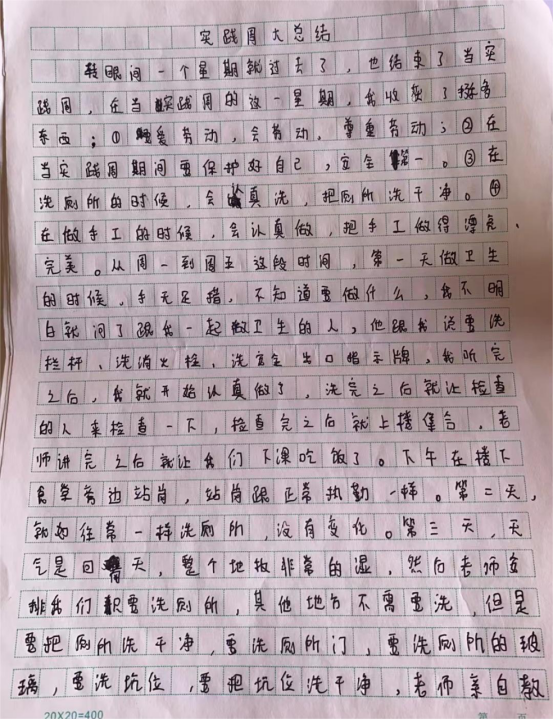 实践周大总结
转眼间一个星期就过去了，也结束了当实
践周，在当实践周的这一星期，我收获了很多
东西；①爱劳动，会劳动，尊重劳动；②在
当实践周期间要保护好自己，安全第一。③在
洗厕所的时候，会认真洗，把厕所洗干净。④
在做手工的时候，会认真做，把手工做得漂亮、
完美。从周一到周五这段时间，第一天做卫生
的时候，手无足措，不知道要做什么，我不明
白就问了跟我一起做卫生的人，他跟我说要洗
栏杆、洗消火栓、洗安全出口指示牌，我听完
之后，我就开始认真做了，洗完之后就让检查
的人来检查一下，检查完之后就上楼集合，老
师讲完之后就让我们下课吃饭了。下午在楼下
食堂旁边站岗，站岗跟正常执勤一样。第二天，
就如往常一样洗厕所，没有变化。第三天，天
气是回南天，整个地板非常的湿，然后老师安
排我们只要洗厕所，其他地方不需要洗，但是
要把厕所洗干净，要洗厕所门，要洗厕所的玻
璃，要洗坑位，要把坑位洗干净，老师亲自教
20×20=400
第 页